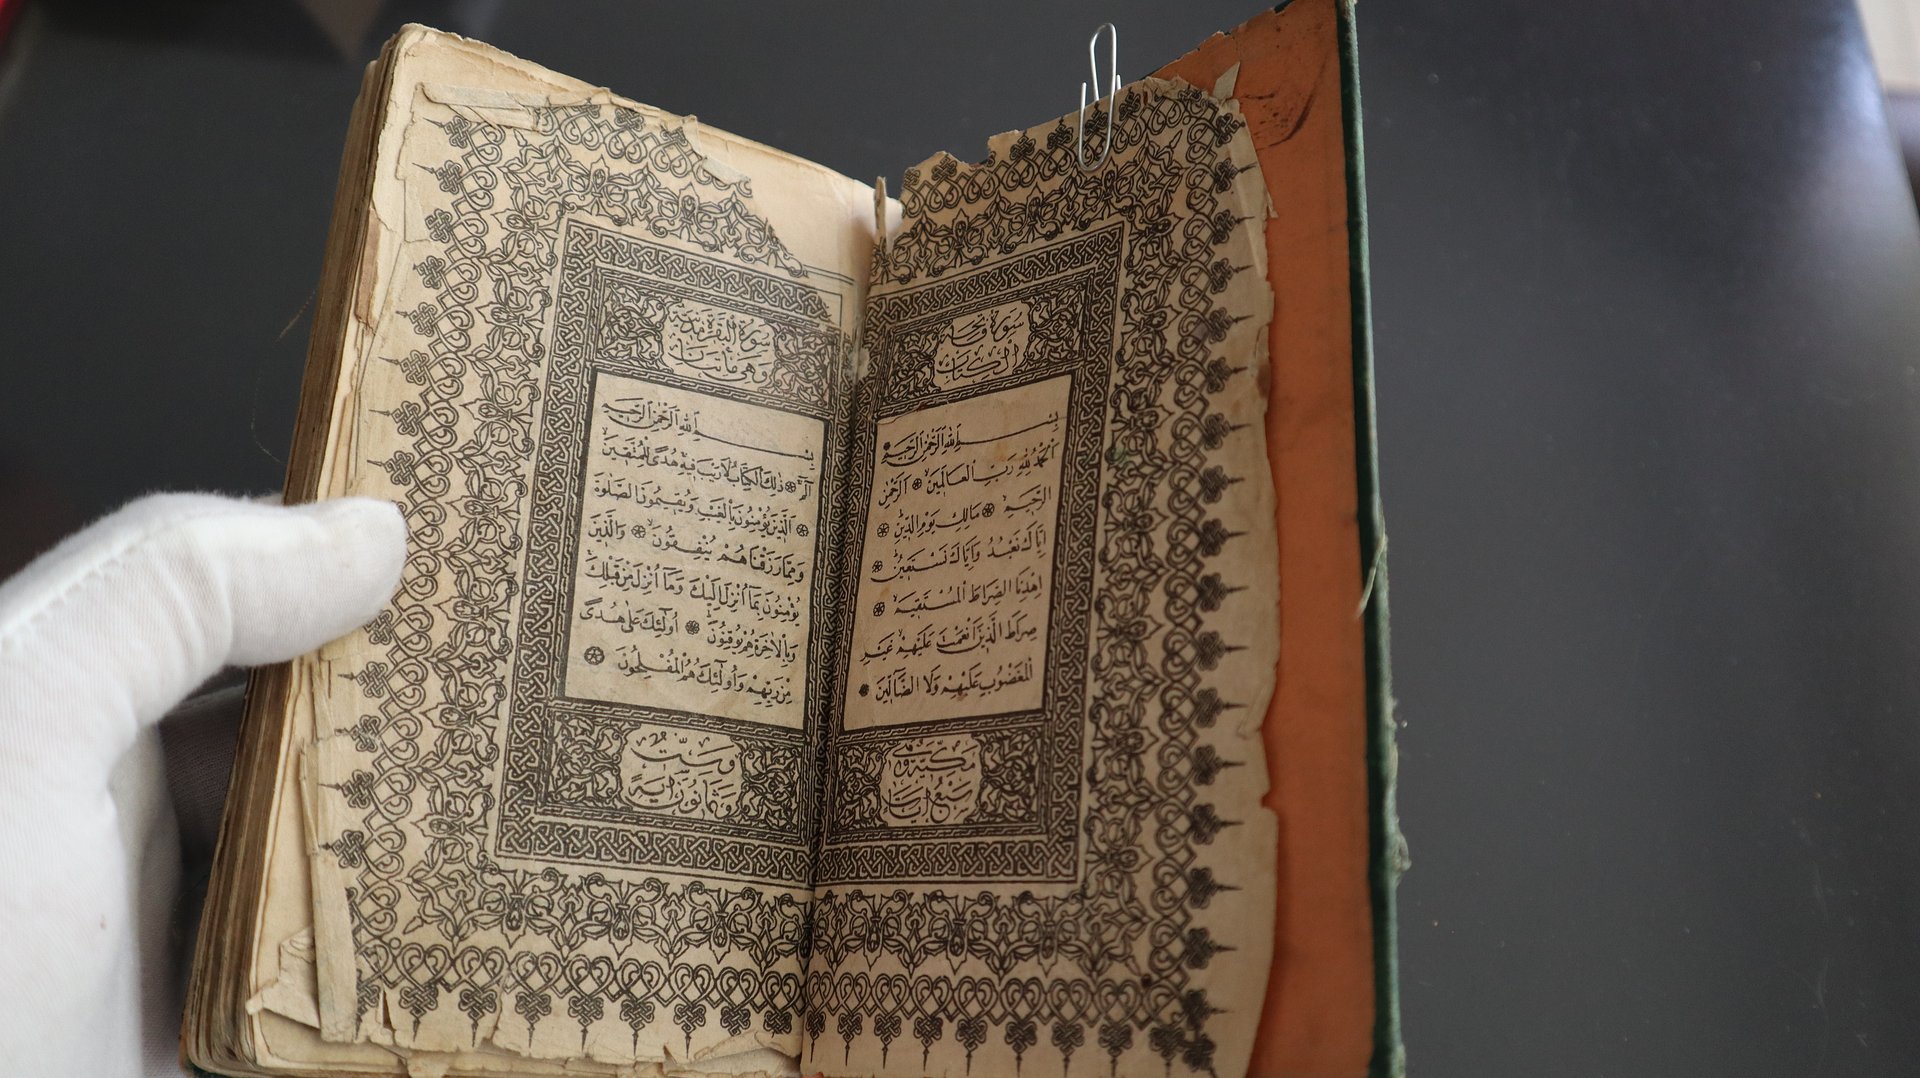 سورة فاتحة
الكتاب
بسم الله الرحمن الرحيم
الحمد لله رب العالمين الرحمن
الرحيم مالك يوم الدين
اياك نعبد واياك نستعين
اهدنا الصراط المستقيم
صراط الذين انعمت عليهم غير
المغضوب عليهم ولا الضالين
مكية وهي
سبع ايات
سورة البقرة مدنية
وهي مائتا
بسم الله الرحمن الرحيم
الم ذلك الكتاب لا ريب فيه هدى للمتقين
الذين يؤمنون بالغيب ويقيمون الصلوة
ومما رزقناهم ينفقون والذين
يؤمنون بما انزل اليك وما انزل من قبلك
وبالاخرة هم يوقنون اولئك على هدى
من ربهم واولئك هم المفلحون
وست
وثمانون اية